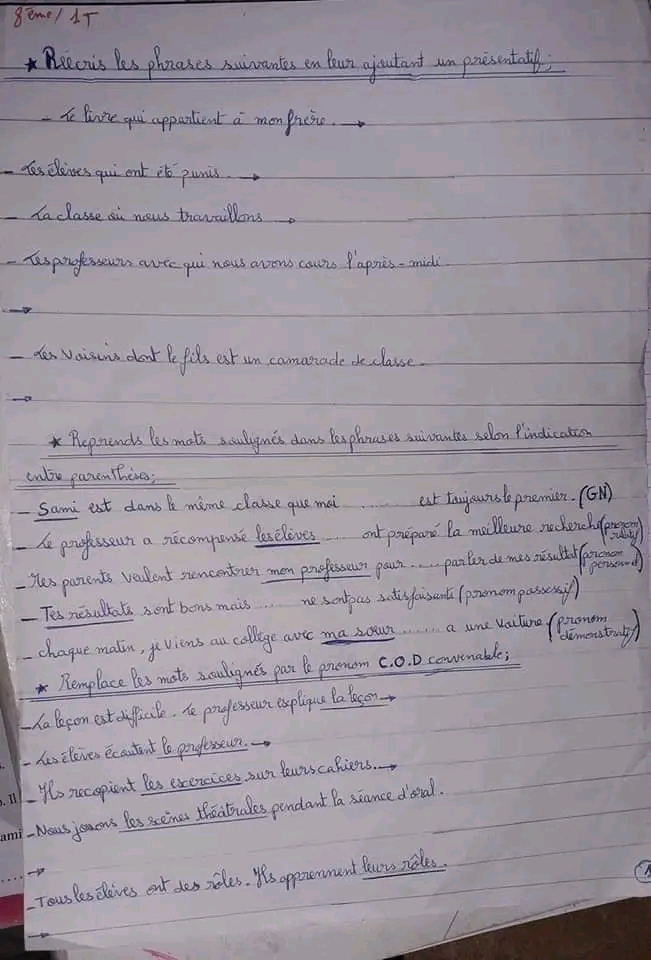 8ème/1T
★ Réécris les phrases suivantes en leur ajoutant un présentatif;
- Le livre qui appartient à mon frère. →
- Les élèves qui ont été punis. →
- La classe où nous travaillons →
- Les professeurs avec qui nous avons cours l'après-midi.
→
- Les voisins dont le fils est un camarade de classe.
→
★ Reprends les mots soulignés dans les phrases suivantes selon l'indication
entre parenthèses;
- Sami est dans le même classe que moi ...... est toujours le premier. (GN)
- Le professeur a récompensé les élèves ..... ont préparé la meilleure recherche (pronom relatif)
- Mes parents veulent rencontrer mon professeur pour ..... parler de mes résultat (pronom personnel)
- Tes résultats sont bons mais .... ne sont pas satisfaisants (pronom possessif)
- chaque matin, je viens au collège avec ma sœur ...... a une voiture (pronom démonstratif)
★ Remplace les mots soulignés par le pronom C.O.D convenable;
- La leçon est difficile. Le professeur explique la leçon →
- Les élèves écoutent le professeur. →
- Ils recopient les exercices sur leurs cahiers. →
- Nous jouons les scènes théâtrales pendant la séance d'oral.
→
- Tous les élèves ont des rôles. Ils apprennent leurs rôles.
→